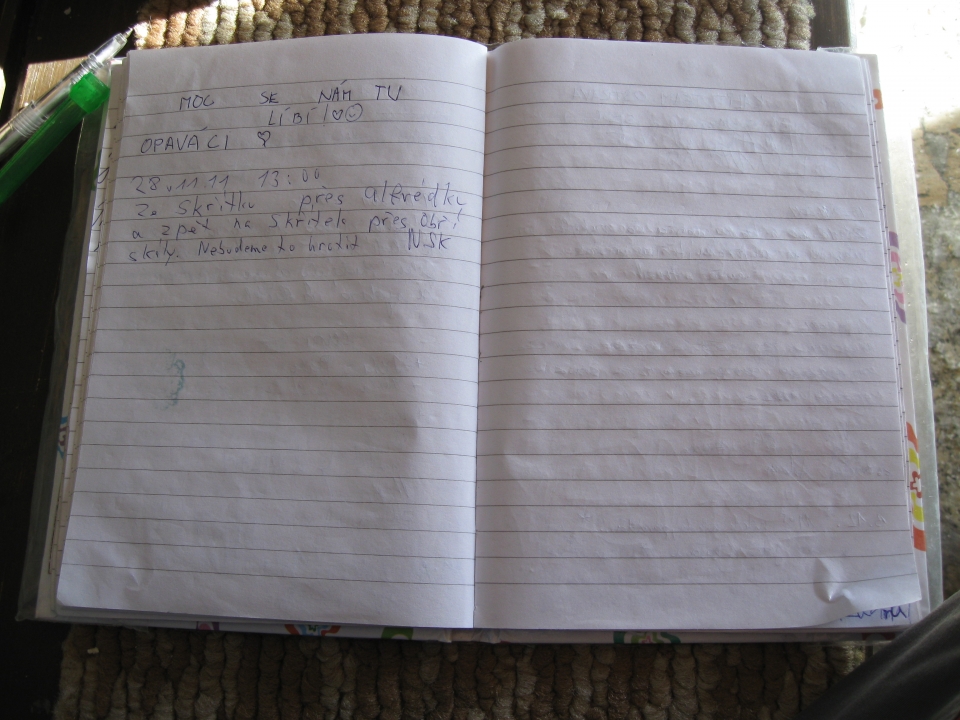 MOC SE NÁM TU
LÍBÍ! ♡☺
OPAVÁCI ♡
28.11.11 13:00
Ze Skřítku přes Alfrédku
a zpět na Skřítek přes Obří
skály. Nebudeme to hrotit NSK